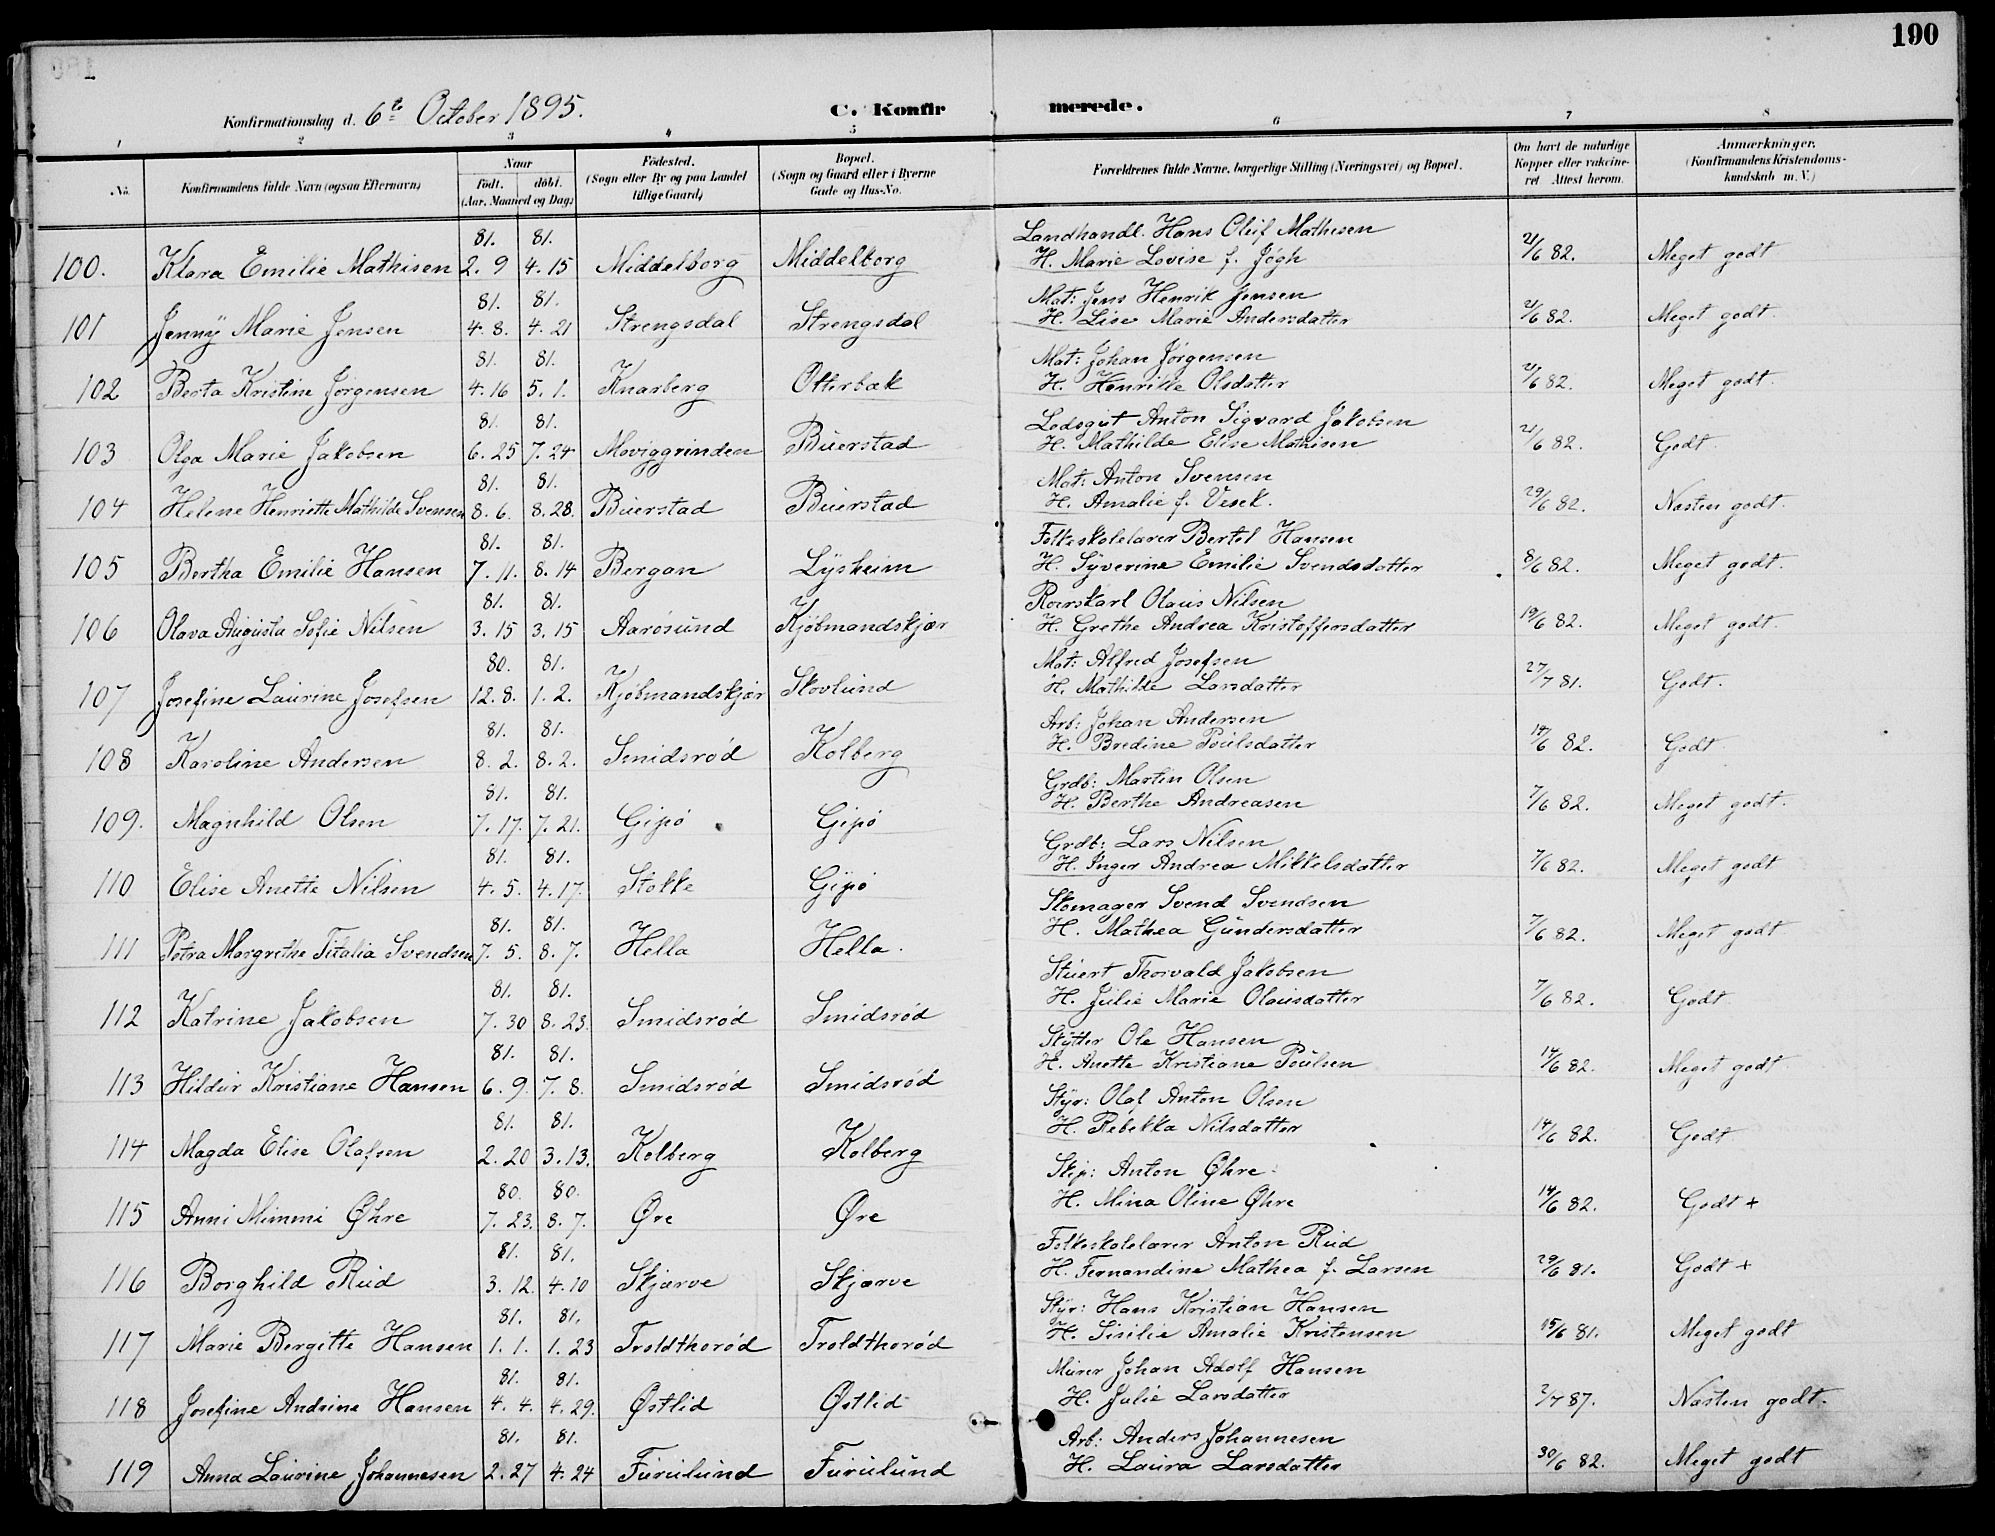 190
Konfirmationsdag d. 6te October 1895. C. Konfirmerede.
1 2 3 4 5 6 7 8
No. Konfirmandens fulde Navn (ogsaa Efternavn) Naar født. døbt. (Aar, Maaned og Dag) Fødested. (Sogn eller By og paa Landet tillige Gaard) Bopæl. (Sogn og Gaard eller i Byerne Gade og Hus-No. Forældrenes fulde Navne, borgerlige Stilling (Næringsvei) og Bopæl. Om havt de naturlige Kopper eller vakcineret Attest herom. Anmærkninger. (Konfirmandens Kristendomskundskab m. V.)
81. 81. Landhandl. Hans Oluf Mathisen
100. Klara Emilie Mathisen 2. 9 4. 15 Middelborg Middelborg H. Marie Lovise f. Jøgh 21/6 82. Meget godt
81. 81. Mat: Jens Henrik Jensen
101 Jenny Marie Jensen 4. 8. 4. 21 Strengsdal Strengsdal H. Lise Marie Andersdatter 21/6 82. Meget godt.
81. 81. Mat: Johan Jørgensen
102 Berta Kristine Jørgensen 4. 16 5. 1. Knarberg Otterbæk H. Henrikke Olsdatter 21/6 82. Meget godt.
81. 81. Lodsgut Anton Sigvard Jakobsen
103 Olga Marie Jakobsen 6. 25 7. 24 Moviggrinden Buerstad H. Mathilde Elise Mathisen 21/6 82. Godt.
81. 81. Mat: Anton Svensen
104 Helene Henriette Mathilde Svensen 8. 6. 8. 28. Buerstad Buerstad H. Amalie f. Vesek. 29/6 82. Næsten godt.
81. 81. Folkeskolelærer Bertel Hansen
105 Bertha Emilie Hansen 7. 11. 8. 14 Bergan Lysheim H. Syverine Emilie Svendsdatter 8/6 82. Meget godt.
81. 81. Roerskarl Olaus Nilsen
106 Olava Augusta Sofie Nilsen 3. 15 3. 15 Aarøsund Kjøbmandskjær H. Grethe Andrea Kristoffersdatter 19/6 82. Meget godt.
80. 81. Mat: Alfred Josefsen
107 Josefine Laurine Josefsen 12. 8. 1. 2. Kjøbmandskjær Skovlund H. Mathilde Larsdatter 27/7 81. Godt.
81. 81. Arb: Johan Andersen
108 Karoline Andersen 8. 2. 8. 2. Smidsrød Kolberg H. Bredine Poulsdatter 14/6 82. Godt.
81. 81. Grdb: Martin Olsen
109. Magnhild Olsen 7. 17. 7. 21. Gipø Gipø H. Berthe Andreasen 7/6 82. Meget godt.
81. 81. Grdb: Lars Nilsen
110 Elise Anette Nilsen 4. 5. 4. 17. Stokke Gipø H. Inger Andrea Mikkelsdatter 7/6 82. Meget godt
81. 81. Skomager Svend Svendsen
111 Petra Margrethe Titalia Svendsen 7. 5. 8. 7. Hella Hella. H. Mathea Gundersdatter 7/6 82. Meget godt
81. 81. Stuert Thorvald Jakobsen
112 Katrine Jakobsen 7. 30 8. 23. Smidsrød Smidsrød H. Julie Marie Olausdatter 7/6 82. Godt
81. 81. Skytter Ole Hansen
113 Hildur Kristiane Hansen 6. 9. 7. 8. Smidsrød Smidsrød H. Anette Kristiane Poulsen 14/6 82. Meget godt
81. 81. Styr: Olaf Anton Olsen
114 Magda Elise Olafsen 2. 20 3. 13. Kolberg Kolberg H. Rebekka Nilsdatter 14/6 82. Godt
80. 80. Skip: Anton Øhre
115 Anni Mimmi Øhre 7. 23. 8. 7. Øre Øre H. Mina Oline Øhre 14/6 82. Godt +
81. 81. Folkeskolelærer Anton Rud
116 Borghild Rud 3. 12. 4. 10 Skjærve Skjærve H. Fernandine Mathea f. Larsen 29/6 81. Godt +
81. 81. Styr: Hans Kristian Hansen
117 Marie Bergitte Hansen 1. 1. 1. 23 Troldtherød Troldtherød H. Sisilie Amalie Kristensen 15/6 81. Meget godt
81. 81. Murer Johan Adolf Hansen
118 Josefine Andrine Hansen 4. 4. 4. 29. Østlid Østlid H. Julie Larsdatter 2/7 87. Næsten godt.
81. 81. Arb: Anders Johannesen
119 Anna Laurine Johannesen 2. 27 4. 24 Furulund Furulund H. Laura Larsdatter 30/6 82. Meget godt